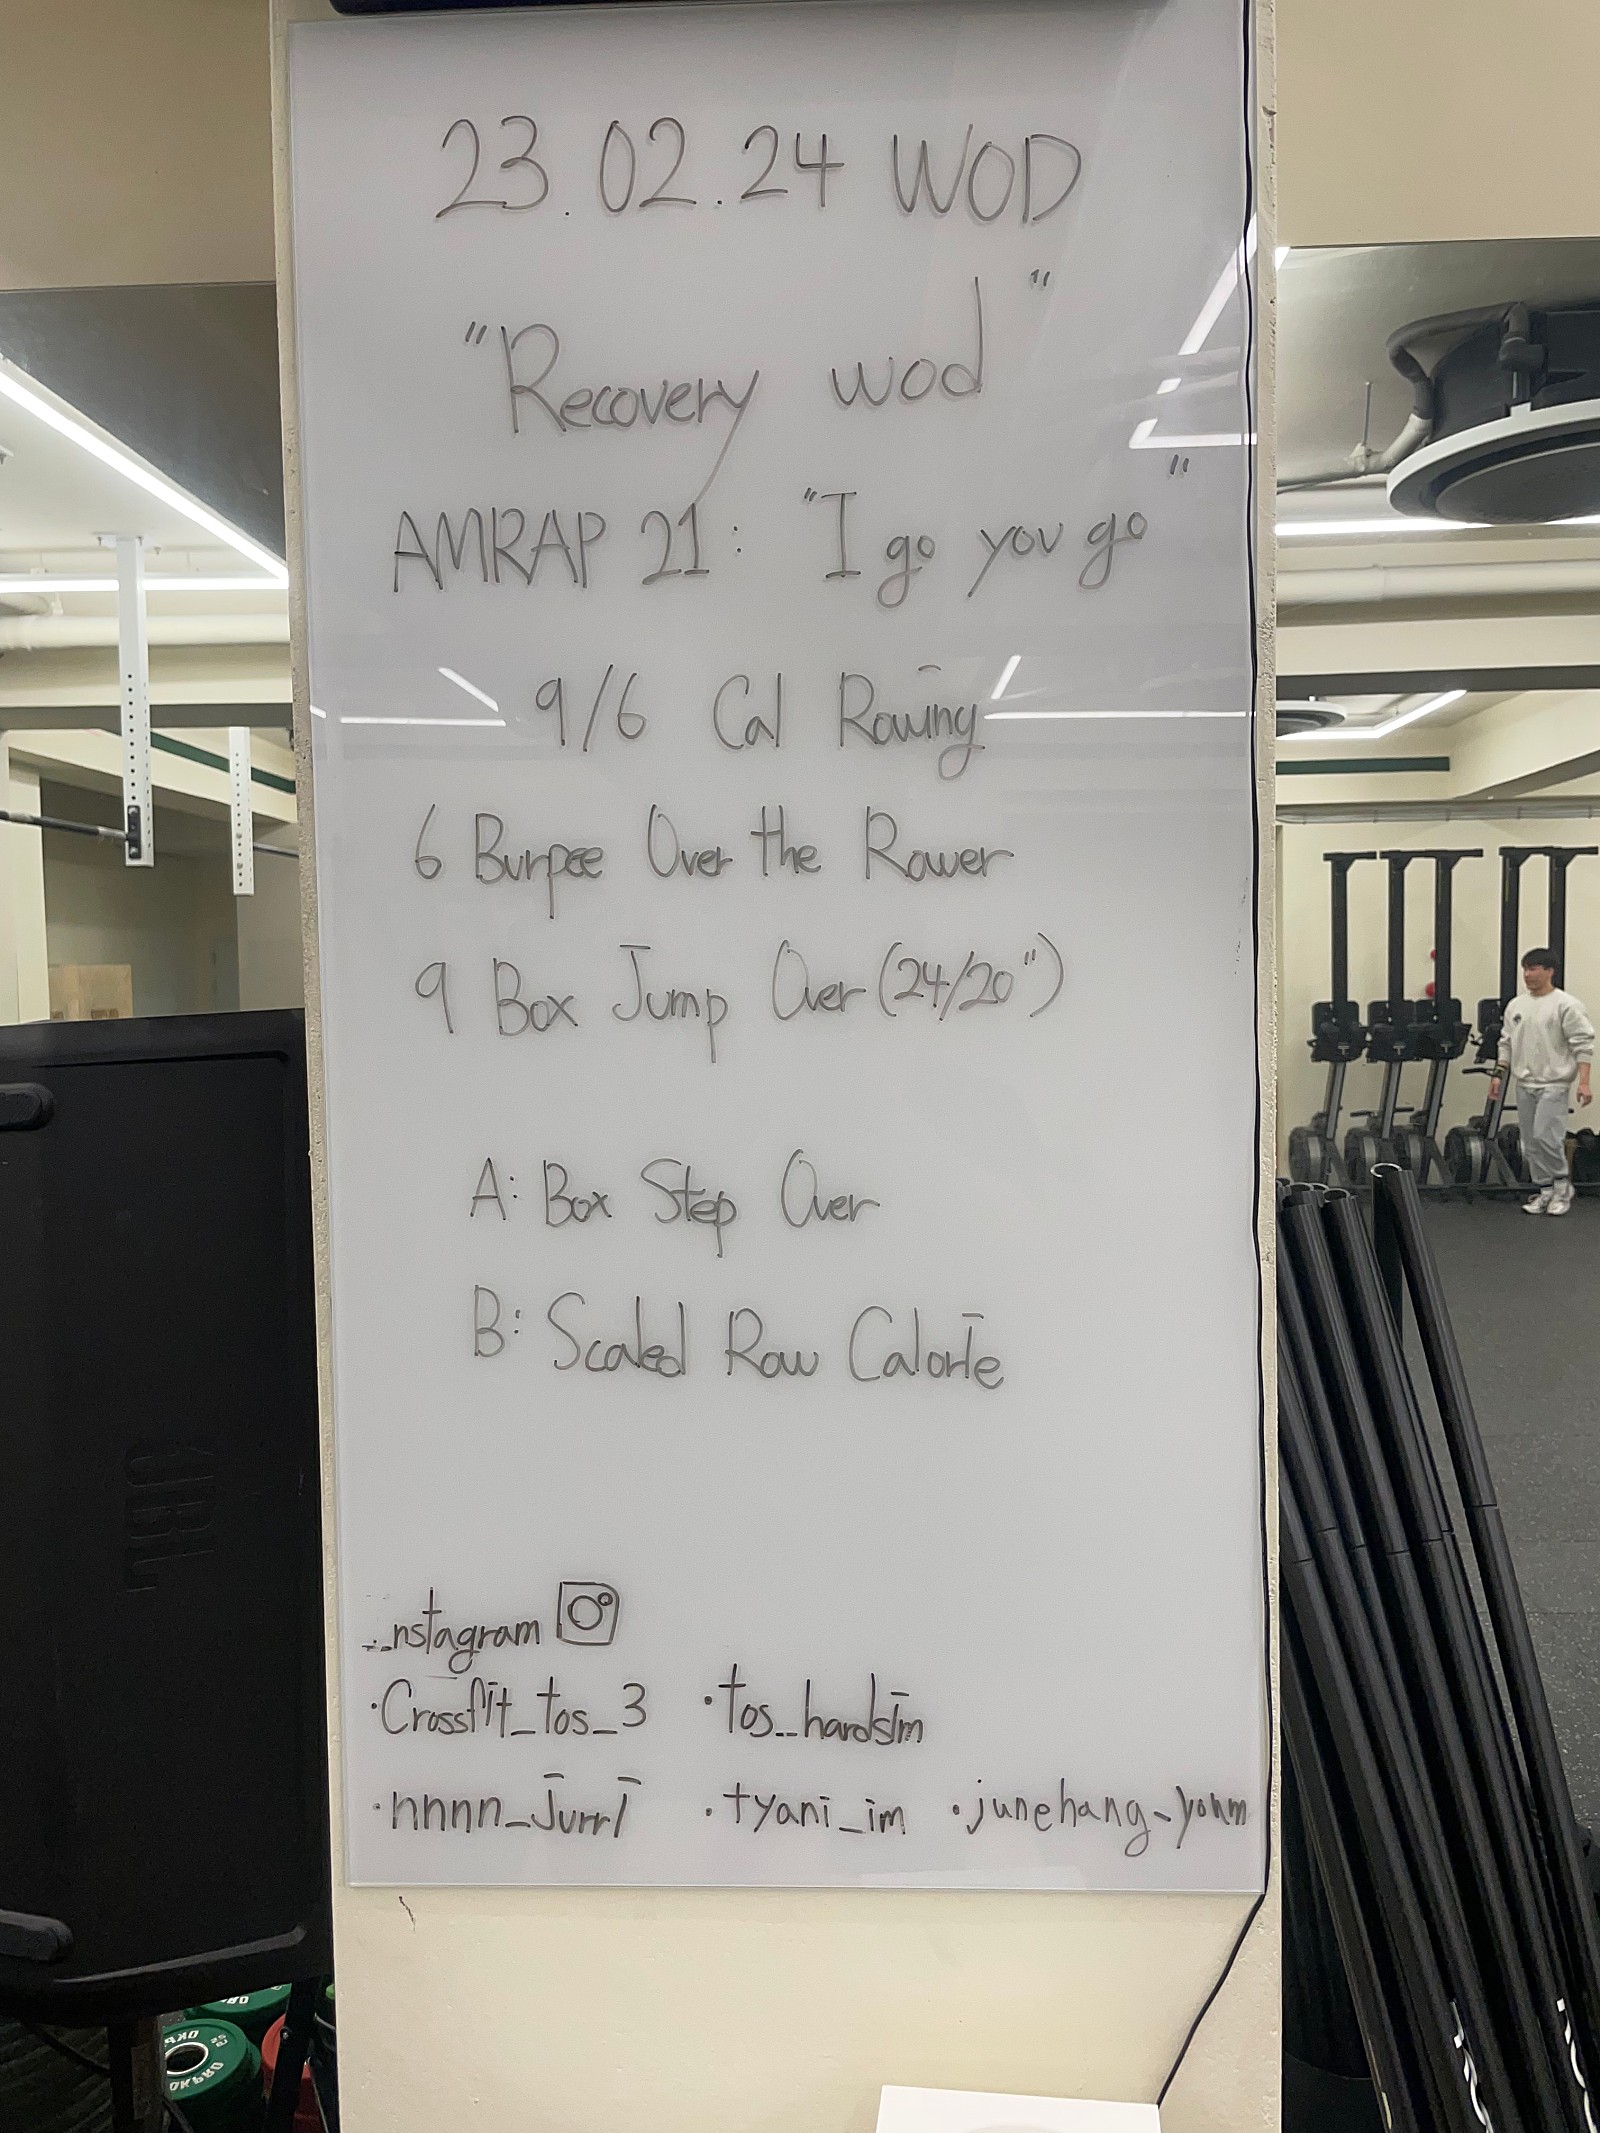 23.02.24 WOD
"Recovery wod"
AMRAP 21: "I go you go"
9/6 Cal Rowing
6 Burpee Over the Rower
9 Box Jump Over (24/20")
A: Box Step Over
B: Scaled Row Calorie
nstagram
·Crossfit_tos_3 ·tos_hardsim
·nnnn_Jurrl ·tyani_im ·junehang_youm
JBL
OKPRO